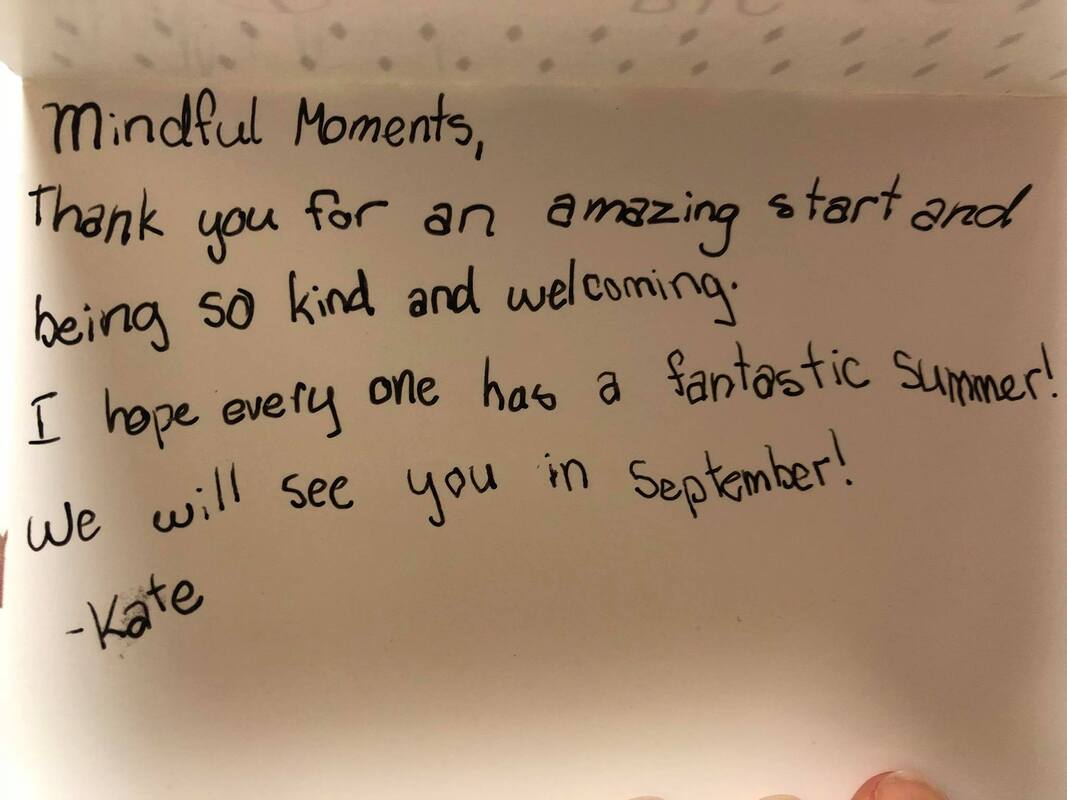 Mindful Moments,
Thank you for an amazing start and
being so kind and welcoming.
I hope every one has a fantastic summer!
We will see you in September!
-Kate